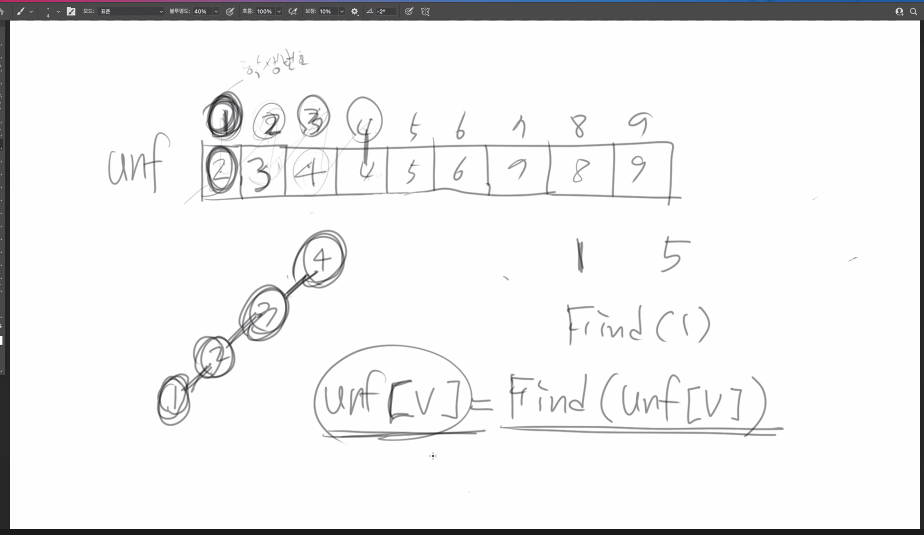 모드: 표준 불투명도: 40% 흐름: 100% 보정: 10% -2°
학생번호
1 2 3 4 5 6 7 8 9
unf 2 3 4 4 5 6 7 8 9
1 5
4
Find(1)
3
2
1
unf[v] = Find(unf[v])